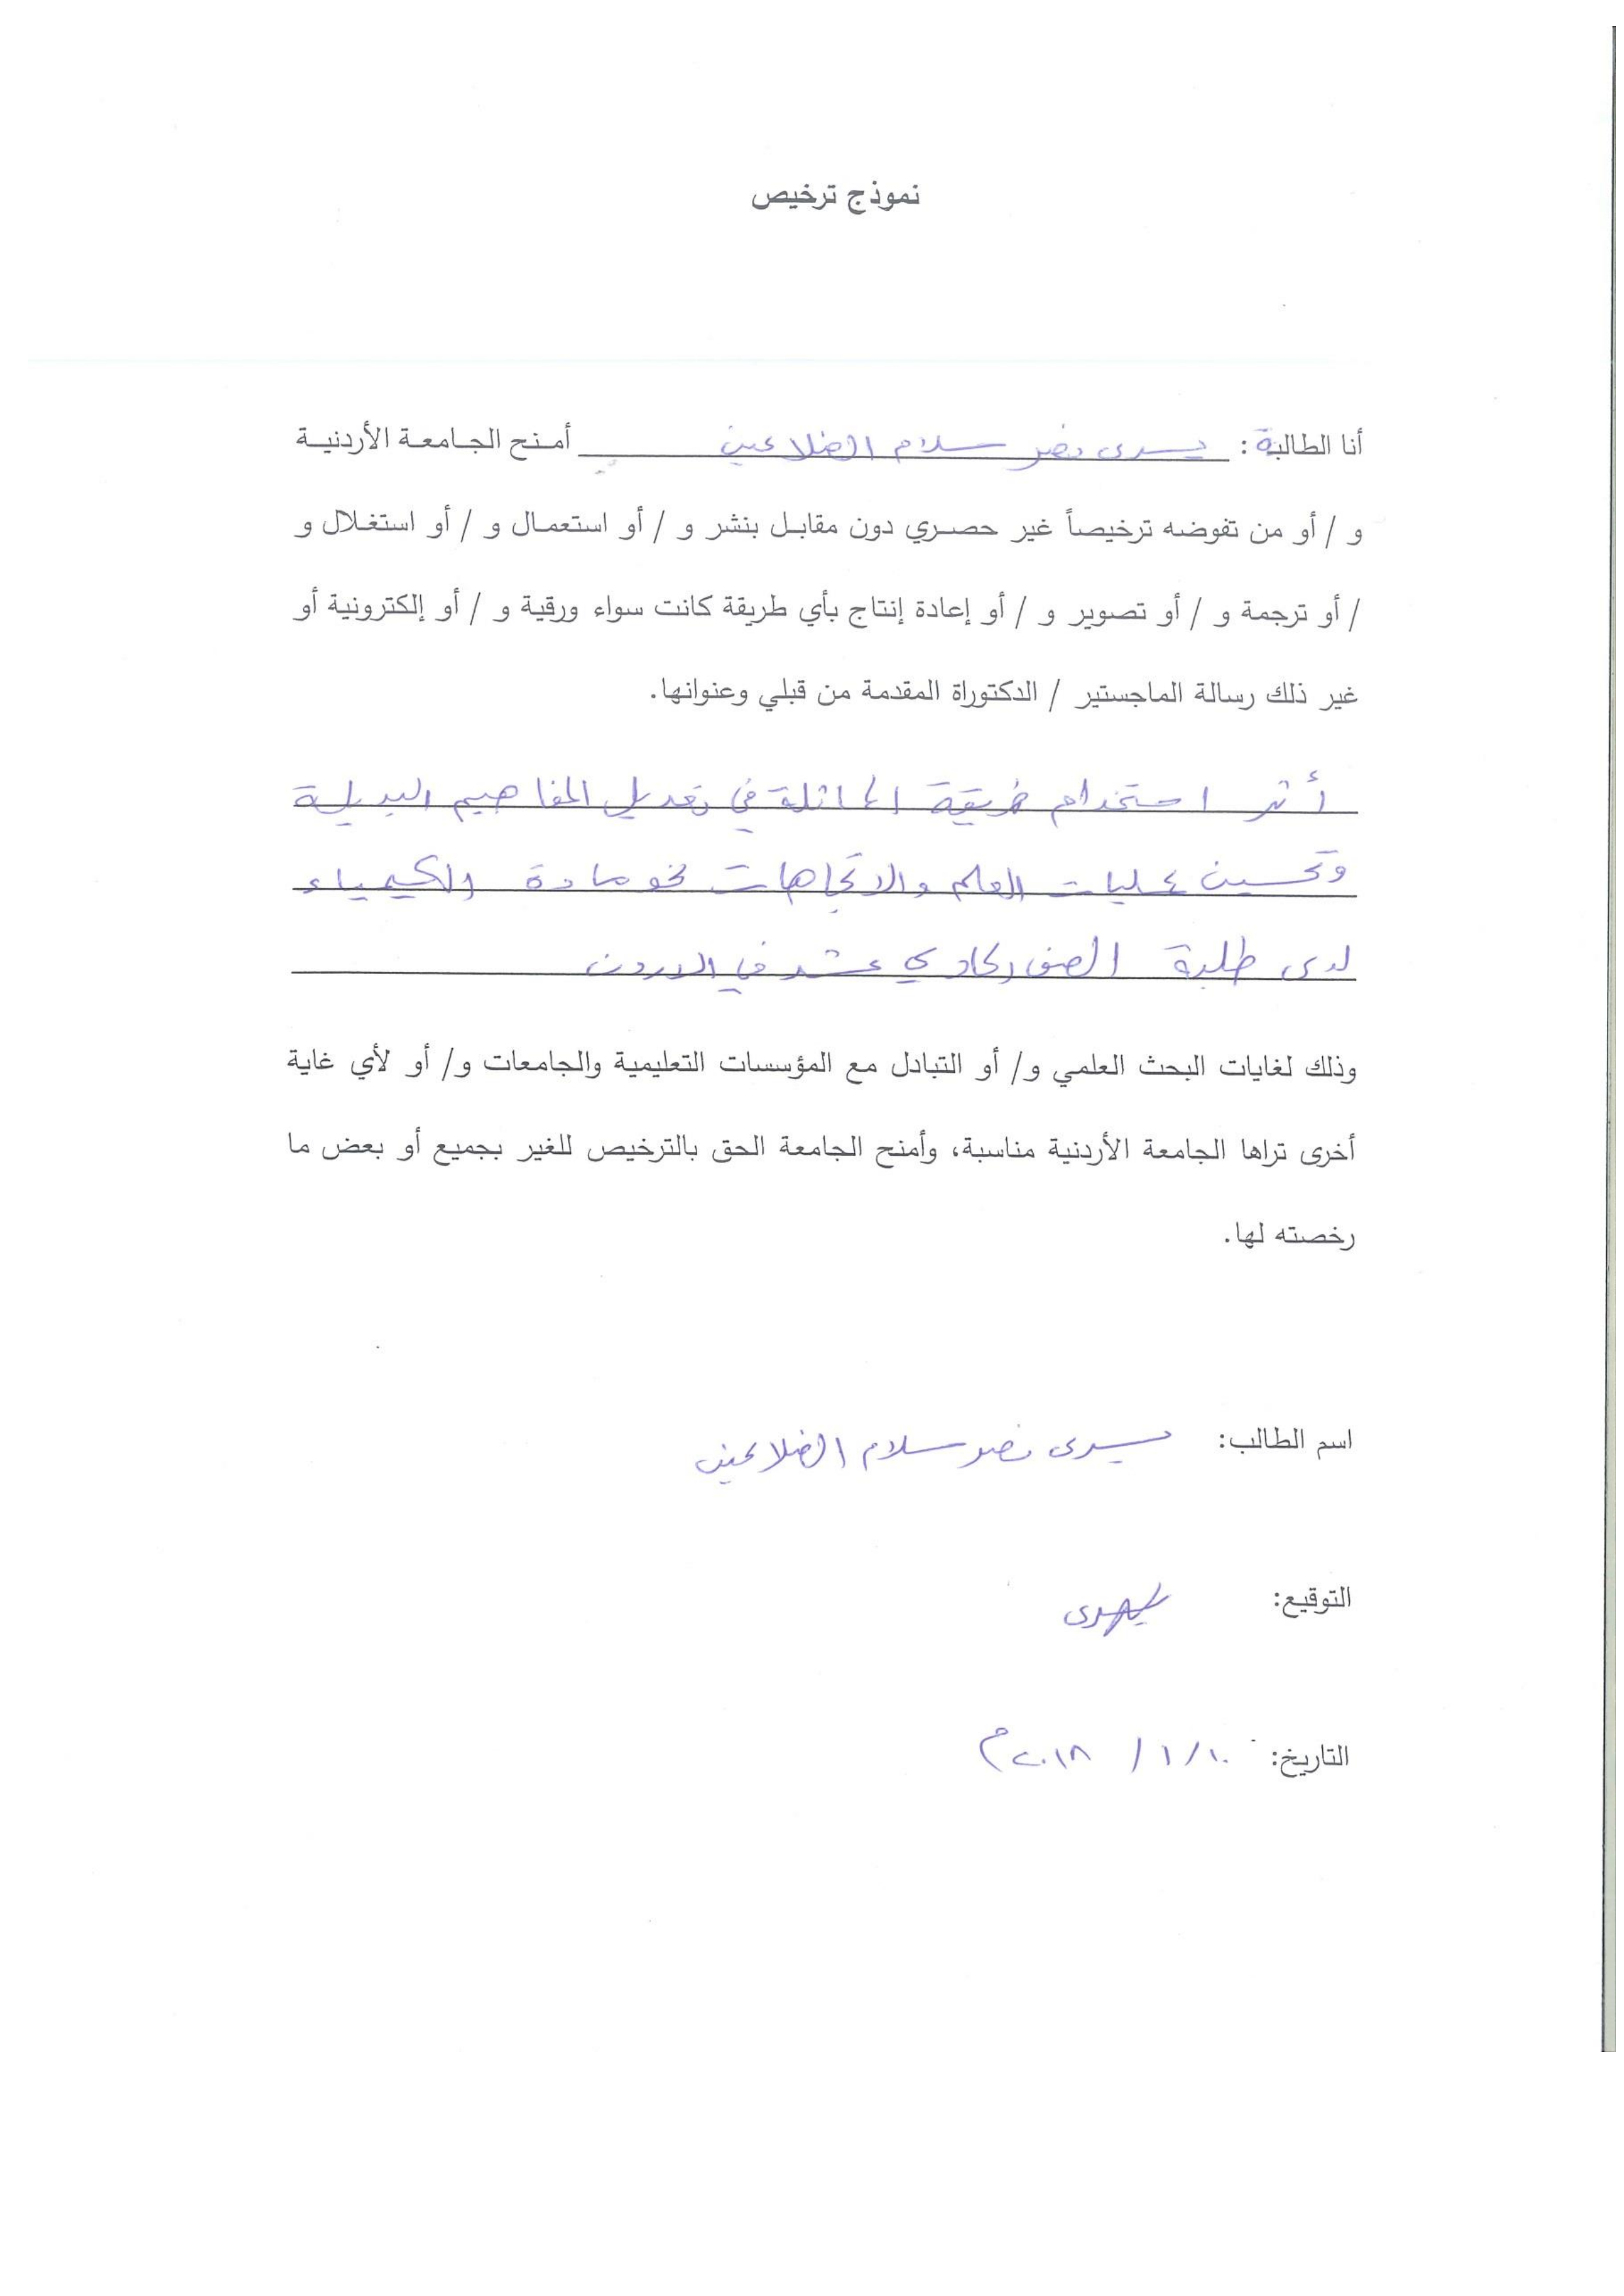 نموذج ترخيص
أنا الطالبة : يسرى نصر سلام الضلاعين أمنح الجامعة الأردنية
و / أو من تفوضه ترخيصاً غير حصري دون مقابل بنشر و / أو استعمال و / أو استغلال و
/ أو ترجمة و / أو تصوير و / أو إعادة إنتاج بأي طريقة كانت سواء ورقية و / أو إلكترونية أو
غير ذلك رسالة الماجستير / الدكتوراة المقدمة من قبلي وعنوانها.
أثر استخدام طريقة المماثلة في تعديل المفاهيم البديلة
وتحسين عمليات العلم والاتجاهات نحو مادة الكيمياء
لدى طلبة الصف الحادي عشر في الاردن
وذلك لغايات البحث العلمي و/ أو التبادل مع المؤسسات التعليمية والجامعات و/ أو لأي غاية
أخرى تراها الجامعة الأردنية مناسبة، وأمنح الجامعة الحق بالترخيص للغير بجميع أو بعض ما
رخصته لها.
اسم الطالب: يسرى نصر سلام الضلاعين
التوقيع: يسرى
التاريخ: ١٠/ ١ / ٢٠١٨م